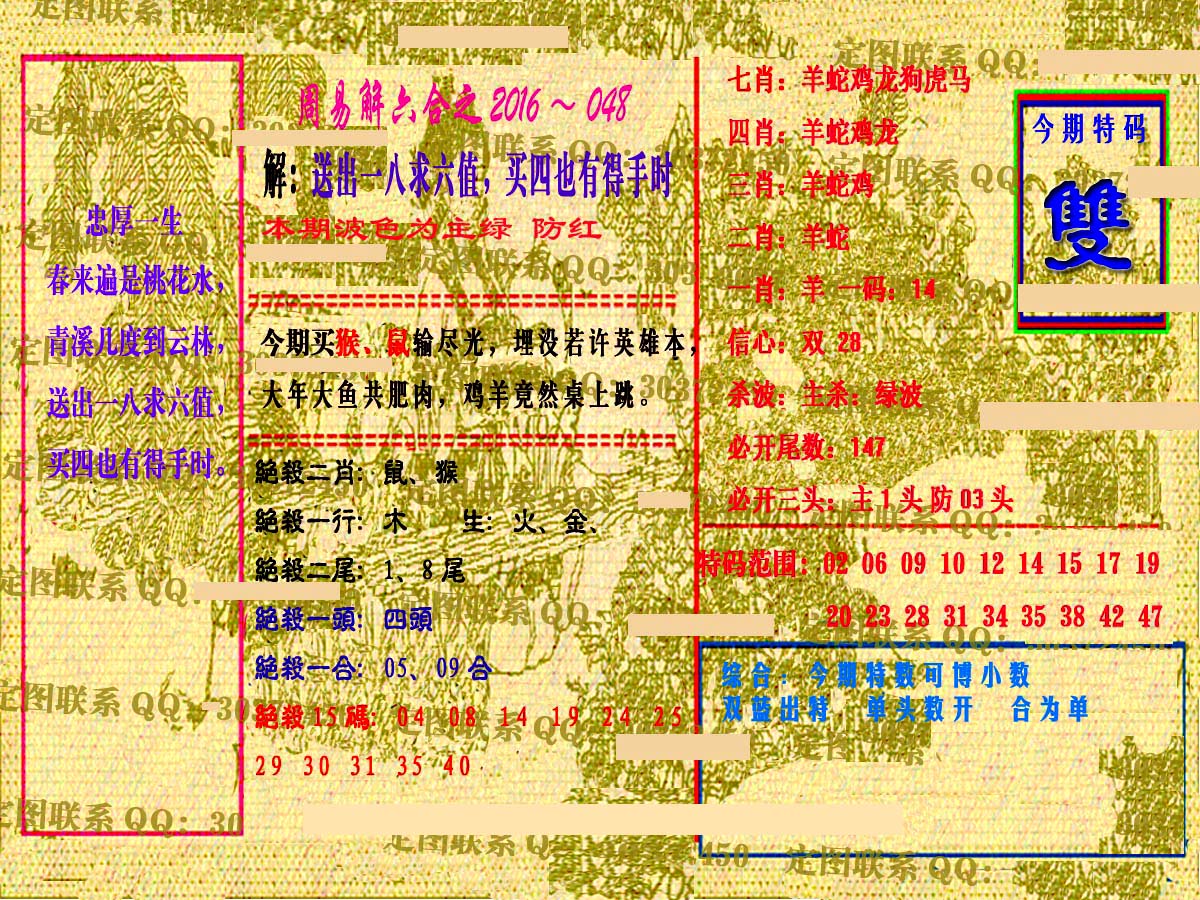 忠厚一生
春来遍是桃花水，
青溪几度到云林，
送出一八求六值，
买四也有得手时。
周易解六合之2016～048
解：送出一八求六值，买四也有得手时
本期波色为主绿 防红
今期买猴、鼠输尽光，埋没若许英雄本，
大年大鱼共肥肉，鸡羊竟然桌上跳。
絕殺二肖：鼠、猴
絕殺一行：木 生：火、金、
絕殺二尾：1、8尾
絕殺一頭：四頭
絕殺一合：05、09合
絕殺15碼：04 08 14 19 24 25
29 30 31 35 40
七肖：羊蛇鸡龙狗虎马
四肖：羊蛇鸡龙
三肖：羊蛇鸡
二肖：羊蛇
一肖：羊 一码：14
信心：双 28
杀波：主杀：绿波
必开尾数：147
必开三头：主1头防03头
今期特码
雙
特码范围：02 06 09 10 12 14 15 17 19
20 23 28 31 34 35 38 42 47
综合：今期特数可博小数
双蓝出特 单头数开 合为单
定图联系 QQ：